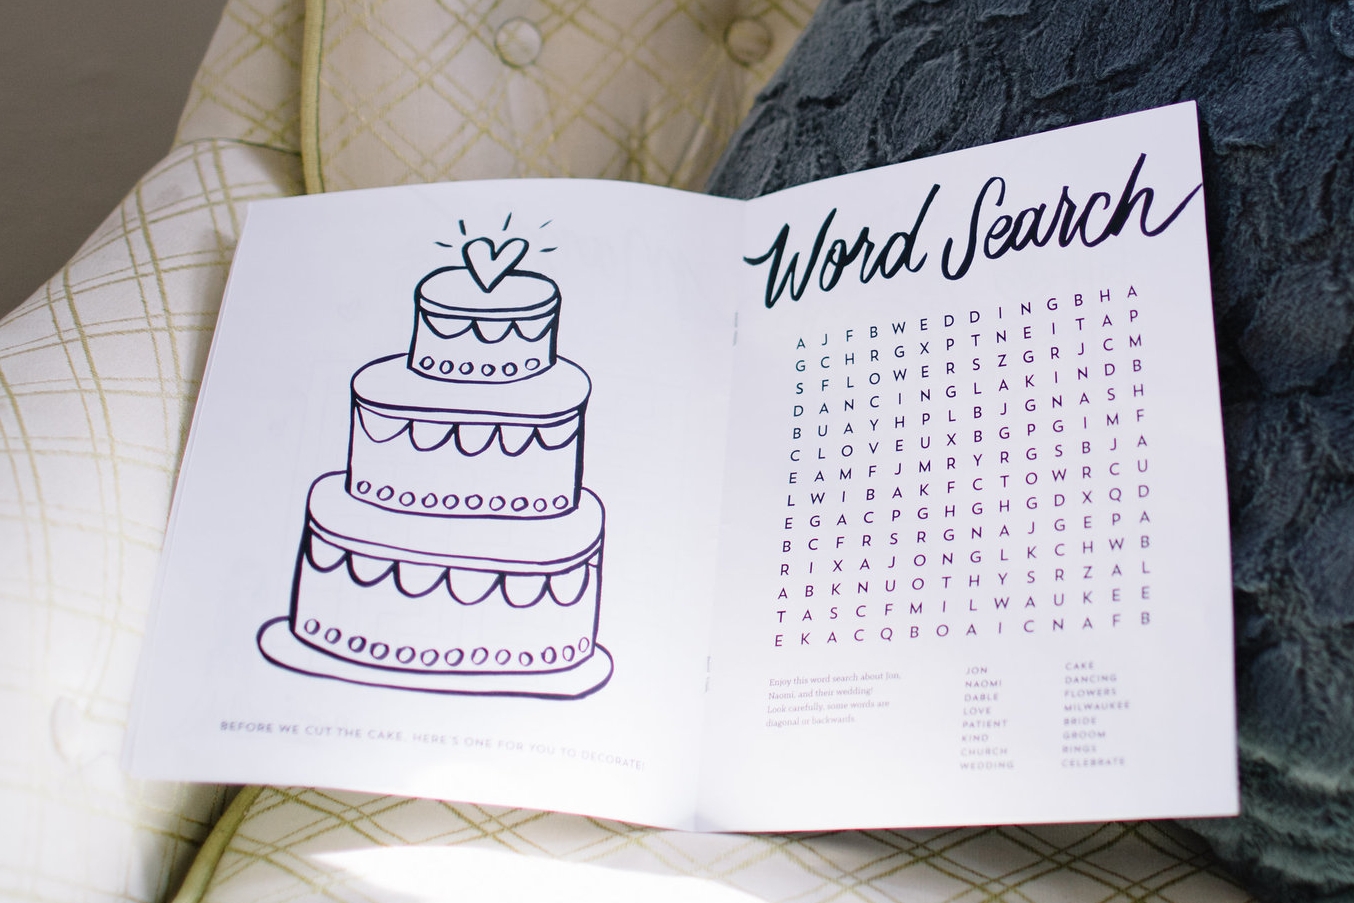 BEFORE WE CUT THE CAKE, HERE'S ONE FOR YOU TO DECORATE!
Word Search
A J F B W E D D I N G B H A
G C H R G X P T N E I T A P
S F L O W E R S Z G R J C M
D A N C I N G L A K I N D B
B U A Y H P L B J G N A S H
C L O V E U X B G P G I M F
E A M F J M R Y R G S B J A
L W I B A K F C T O W R C U
E G A C P G H G H G D X Q D
B C F R S R G N A J G E P A
R I X A J O N G L K C H W B
A B K N U O T H Y S R Z A L
T A S C F M I L W A U K E E
E K A C Q B O A I C N A F B
Enjoy this word search about Jon,
Naomi, and their wedding!
Look carefully, some words are
diagonal or backwards.
JON
NAOMI
DABLE
LOVE
PATIENT
KIND
CHURCH
WEDDING
CAKE
DANCING
FLOWERS
MILWAUKEE
BRIDE
GROOM
RINGS
CELEBRATE